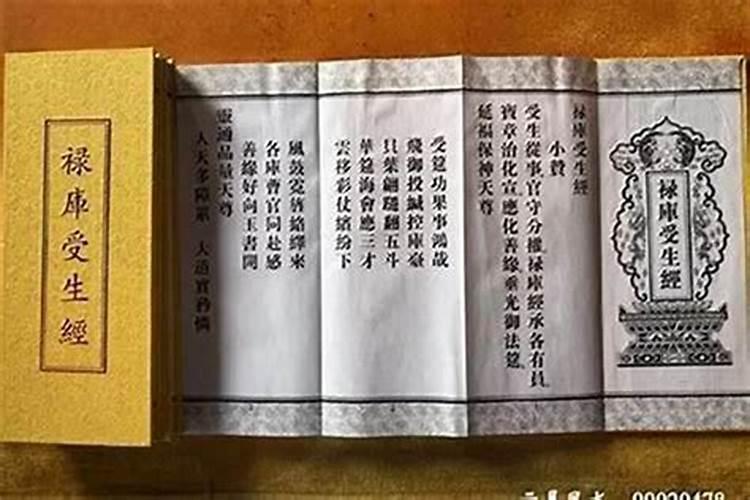 祿庫受生經
祿庫受生經
祿庫受生經
小贊
受生從事官守分權祿庫經承各有員
寶章治化宣應化善緣垂光御法筵
延福保神天尊
受筵功果事鴻哉
飛御投緘控庫臺
貝葉翩躚翻五斗
華筵海會應三才
雲移彩仗繽紛下
風鼓霓旌絡繹來
各庫曹官同赴感
善緣好向玉書開
靈通品量天尊
人天多障累 大道實矜憐